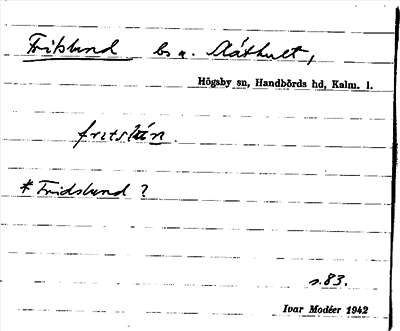 Fritslund bs u. Slåthult,
Högsby sn, Handbörds hd, Kalm. l.
fritslún.
* Fridslund ?
s. 83.
Ivar Modéer 1942